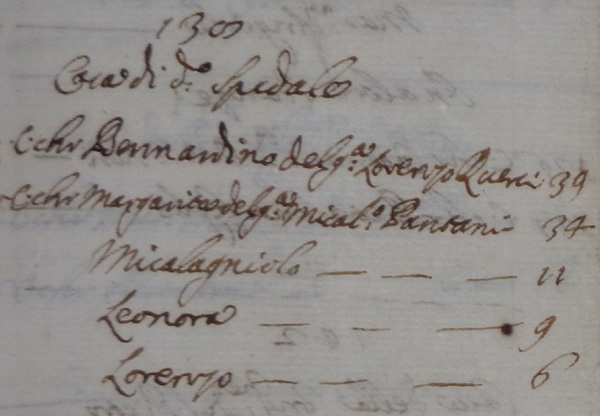 1300
Casa di d.º Spedale
C: chr Bernardino del q.m Lorenzo 39
C: chr Margarita del q.m Mical.º Pantani 34
Micalagniolo — — — 11
Leonora — — — 9
Lorenzo — — — 6